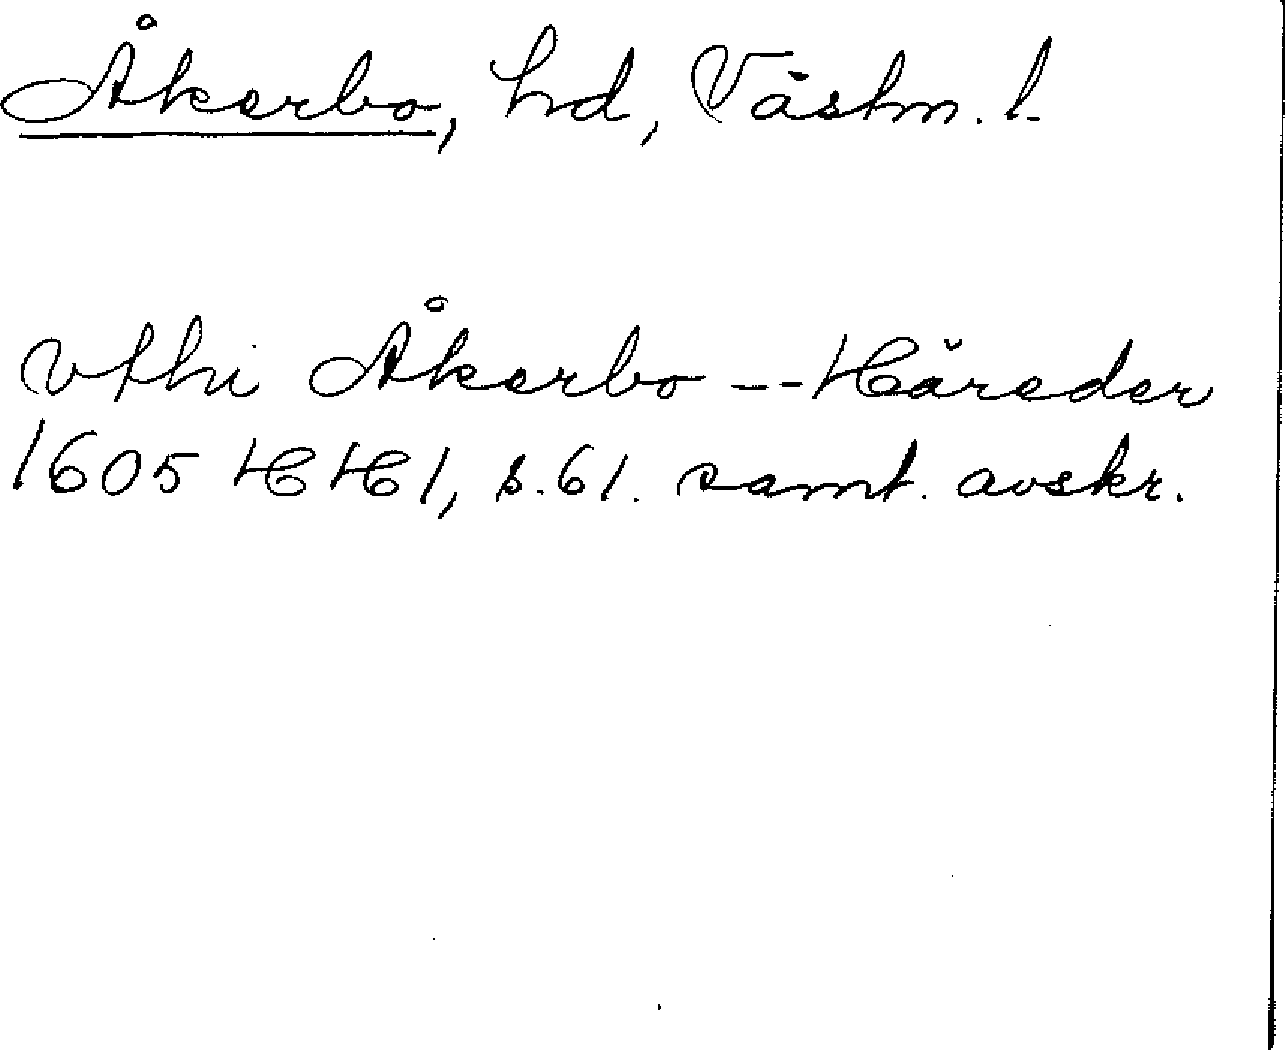 Åkerbo, hd, Västm. l.
vthi Åkerbo -- Häreder
1605 HH 1, s. 61. samt. avskr.